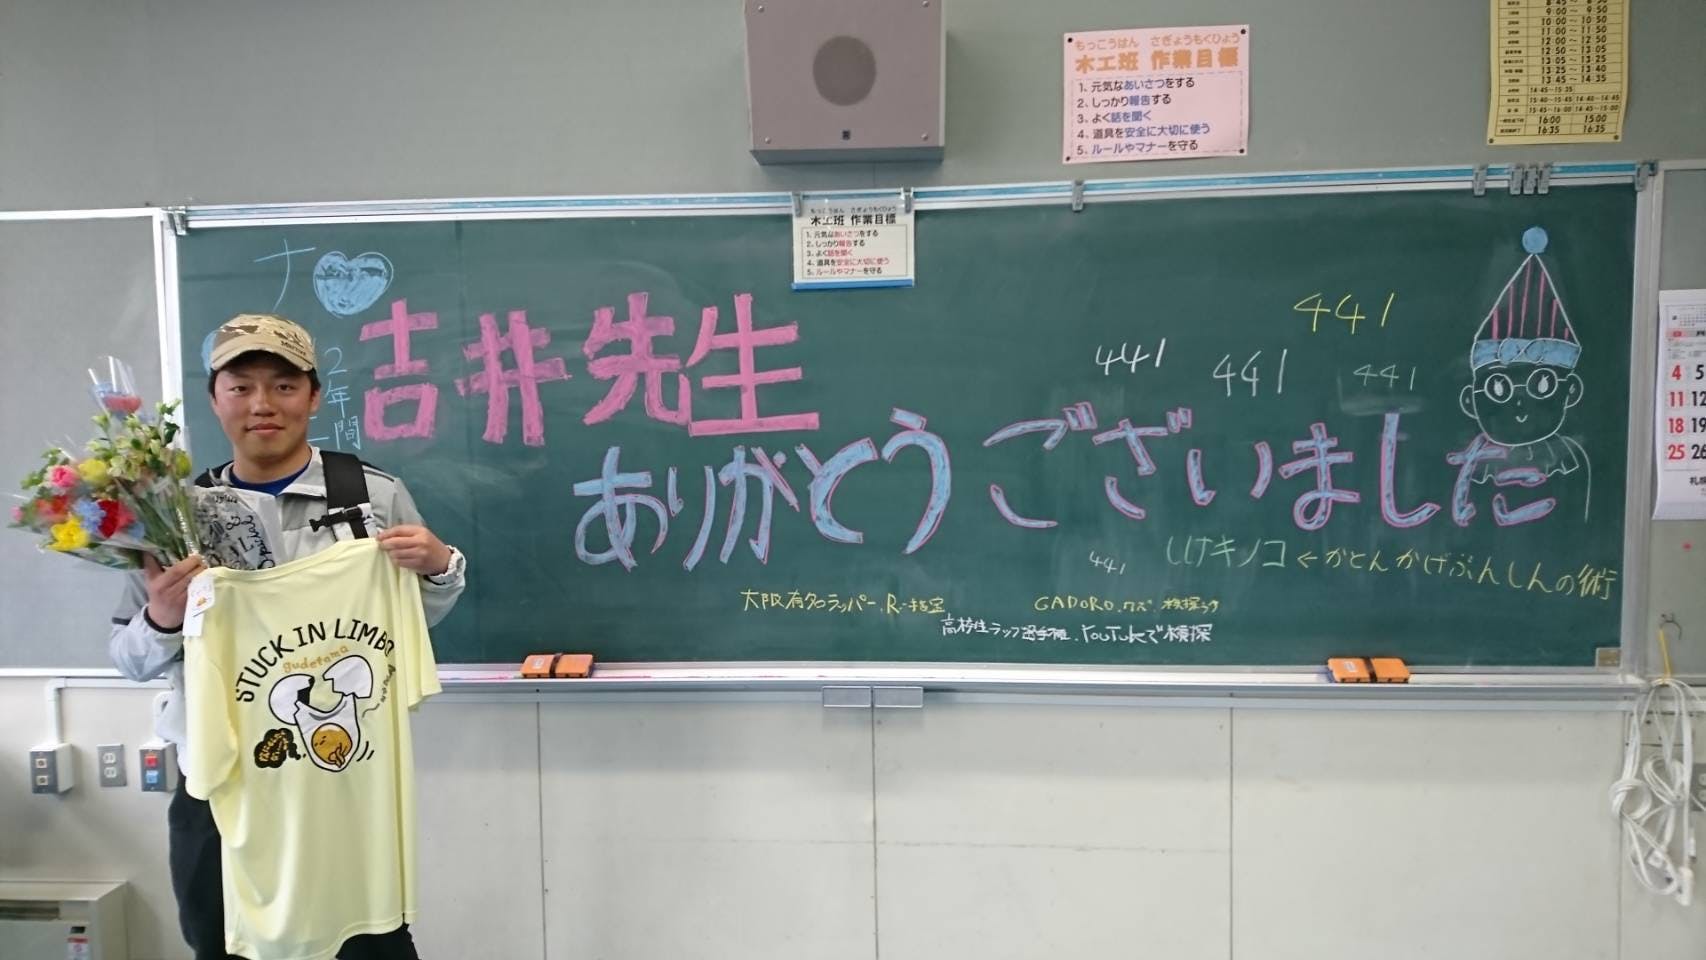 もっこうはん さぎょうもくひょう
木工班 作業目標
1、元気なあいさつをする
2、しっかり報告する
3、よく話を聞く
4、道具を安全に大切に使う
5、ルールやマナーを守る
9:00 ～ 9:50
10:00 ～ 10:50
11:00 ～ 11:50
12:00 ～ 12:50
12:50 ～ 13:05
13:05 ～ 13:25
13:25 ～ 13:40
13:45 ～ 14:35
14:45～15:35
15:40～15:45 14:40～14:45
15:45～16:00 14:45～15:00
16:00 15:00
16:35 16:35
もっこうはん さぎょうもくひょう
木工班 作業目標
1、元気なあいさつをする
2、しっかり報告する
3、よく話を聞く
4、道具を安全に大切に使う
5、ルールやマナーを守る
2年間
吉井先生
ありがとうございました
441
441
441
441
441
しけキノコ ←かとんかげぶんしんの術
大阪有名ラッパー、R-指定
GADORO、クズ、検索
高校生ラップ選手権、YouTubeで検索
STUCK IN LIMBO
gudetama
4 5
11 12
18 19
25 26
札幌